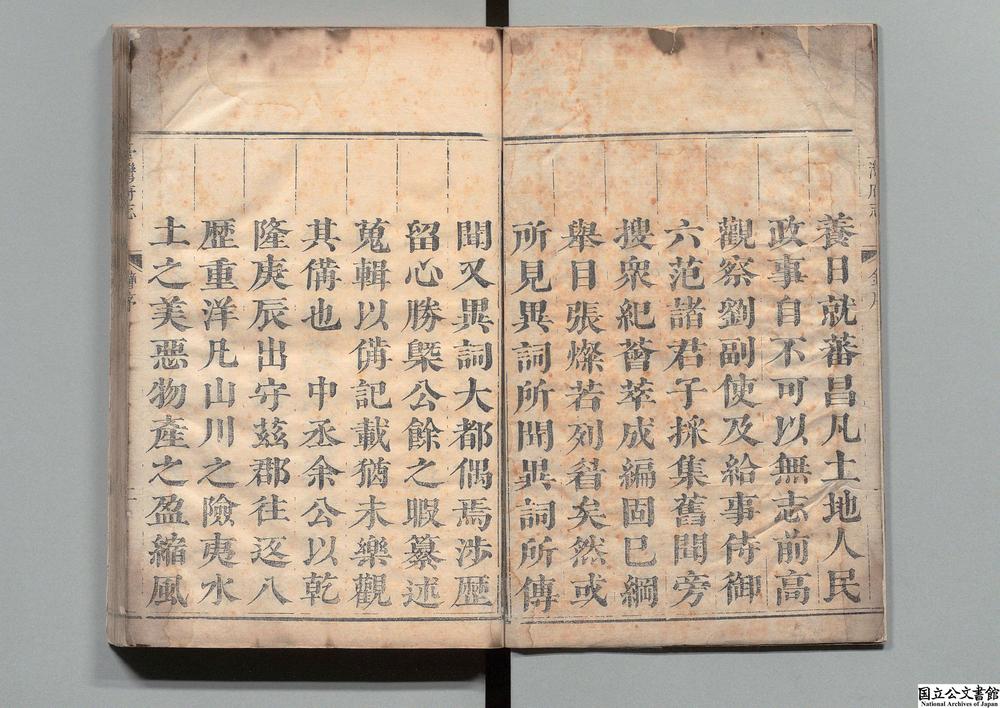 養日就蕃昌凡土地人民
政事自不可以無志前高
觀察劉副使及給事侍御
六范諸君子採集舊聞旁
搜衆紀薈萃成編固已綱
舉目張燦若列眉矣然或
所見異詞所聞異詞所傳
聞又異詞大都偶焉涉歷
留心勝槩公餘之暇纂述
蒐輯以備記載猶未樂觀
其備也　中丞余公以乾
隆庚辰出守茲郡往返八
歷重洋凡山川之險夷水
土之美惡物產之盈縮風
灣府志
國立公文書館
National Archives of Japan